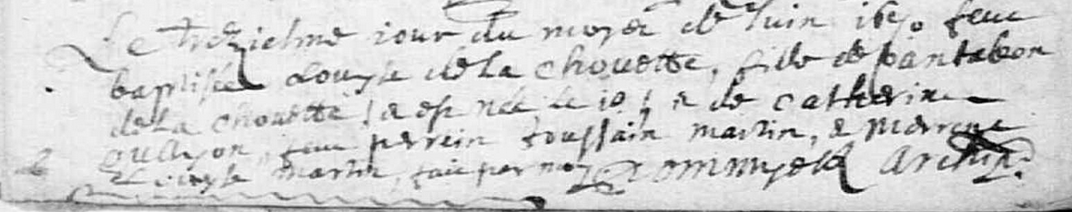 Le treziesme iour du moyes de Iuin 1670 feut
baptisée Louyse de la Chouette, fille de pantaleon
de la Chouette / e est née le 10 / e de Catherine
perrein toussain martin, e Merrene
Louyse martin, faict par moy Archip.